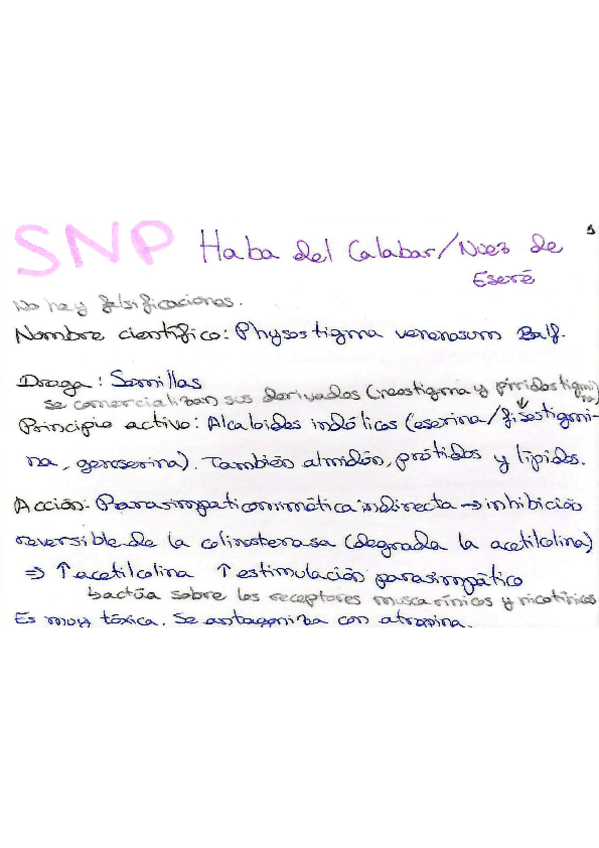 SNP Haba del Calabar/Nuez de
Eseré
1
No hay falsificaciones.
Nombre científico: Physostigma venenosum Balf.
Droga: Semillas
se comercializan sus derivados (neostigma y piridostigmina)
Principio activo: Alcaloides indólicos (eserina/fisostigmi-
na, geneserina). También almidón, prótidos y lípidos.
Acción: Parasimpaticomimética indirecta → inhibición
reversible de la colinesterasa (degrada la acetilcolina)
⇒ ↑ acetilcolina ↑ estimulación parasimpático
↳ actúa sobre los receptores muscarínicos y nicotínicos
Es muy tóxica. Se antagoniza con atropina.